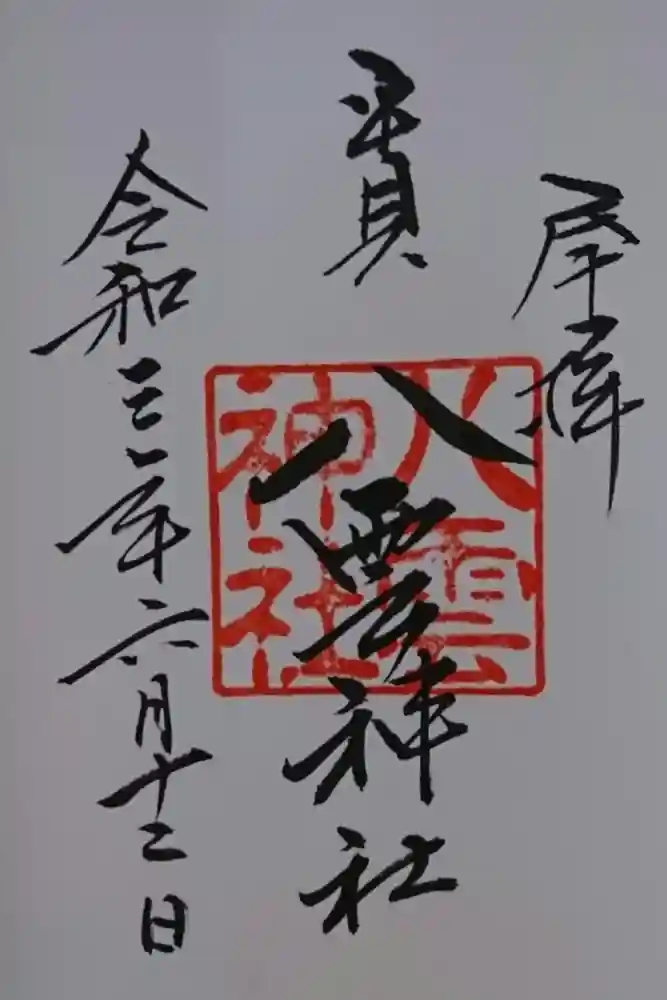 奉拝
八雲神社
令和三年六月十二日
八雲
神社